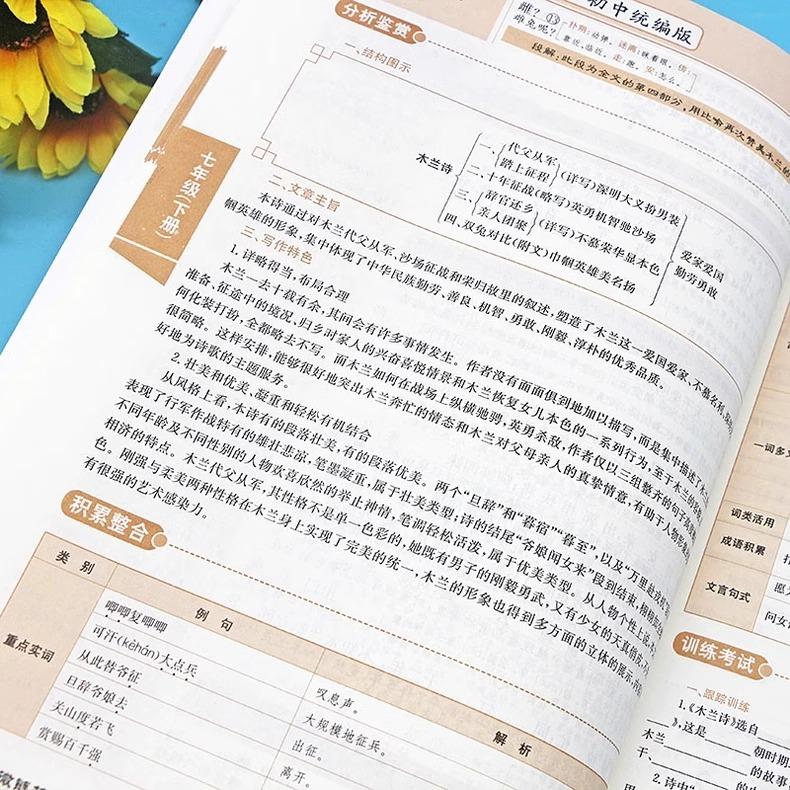 初中统编版
雌?⑬
雄兔呢?
扑朔:动弹。迷离:眯着眼。傍:
靠近,临近。走:跑。安:怎么。
段解:此段为全文的第四部分,用比喻再次赞美木兰的
分析鉴赏
一、结构图示
木兰诗
一、代父从军
踏上征程
(详写)深明大义扮男装
二、十年征战(略写)英勇机智驰沙场
三、辞官还乡
亲人团聚
(详写)不慕荣华显本色
四、双兔对比(附文)巾帼英雄美名扬
爱家爱国
勤劳勇敢
二、文章主旨
本诗通过对木兰代父从军、沙场征战和荣归故里的叙述,塑造了木兰这一爱国爱家、不慕名利、
帼英雄的形象,集中体现了中华民族勤劳、善良、机智、勇敢、刚毅、淳朴的优秀品质。
三、写作特色
1.详略得当,布局合理
木兰一去十载有余,其间会有许多事情发生。作者没有面面俱到地加以描写,而是集中描述了木兰
准备、征途中的境况、归乡时家人的兴奋喜悦情景和木兰恢复女儿本色的一系列行为,至于木兰的
何化装打扮,全都略去不写。而木兰如何在战场上纵横驰骋,英勇杀敌,作者仅以三组整齐的句子
很简略。这样安排,能够很好地突出木兰奔忙的情态和木兰对父母亲人的真挚情意,有助于人物形象
好地为诗歌的主题服务。
2.壮美和优美、凝重和轻松有机结合
从风格上看,本诗有的段落壮美,有的段落优美。两个“旦辞”和“暮宿”“暮至”,以及“万里赴戎机
表现了行军作战特有的雄壮悲凉,笔墨凝重,属于壮美类型;诗的结尾“爷娘闻女来”段到结束,
不同年龄及不同性别的人物欢喜欣然的举止神情,笔调轻松活泼,属于优美类型。从人物个性上说,
相济的特点。木兰代父从军,其性格不是单一色彩的,她既有男子的刚毅勇武,又有少女的天真
色。刚强与柔美两种性格在木兰身上实现了完美的统一,木兰的形象也得到多方面的立体的展示,
有很强的艺术感染力。
七年级(下册)
积累整合
类 别
例 句
解 析
重点实词
唧唧复唧唧
叹息声。
可汗(kèhán)大点兵
大规模地征兵。
从此替爷征
出征。
旦辞爷娘去
离开。
关山度若飞
赏赐百千强
一词多
词类活用
成语积累
文言句式
愿
问女
训练考试
一、跟踪训练
1.《木兰诗》选自
》,这是 朝时期
木兰 的故事
干、
2.诗中“